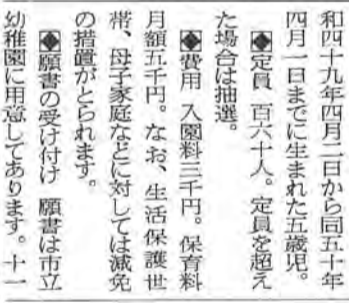 和四十九年四月二日から同五十年
四月一日までに生まれた五歳児。
◆定員　百六十人。定員を超え
た場合は抽選。
◆費用　入園料三千円。保育料
月額五千円。なお、生活保護世
帯、母子家庭などに対しては減免
の措置がとられます。
◆願書の受け付け　願書は市立
幼稚園に用意してあります。十一